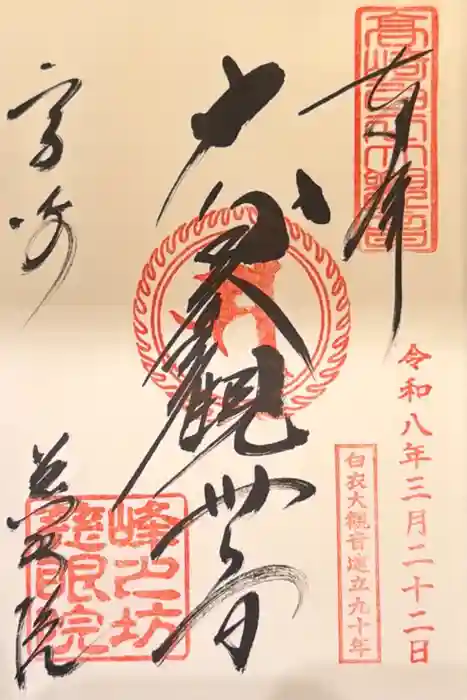 奉拝
高崎白衣大観音
令和八年三月二十二日
白衣大観音建立九十年
觀世音
高崎
慈眼院
峰之坊
慈眼院